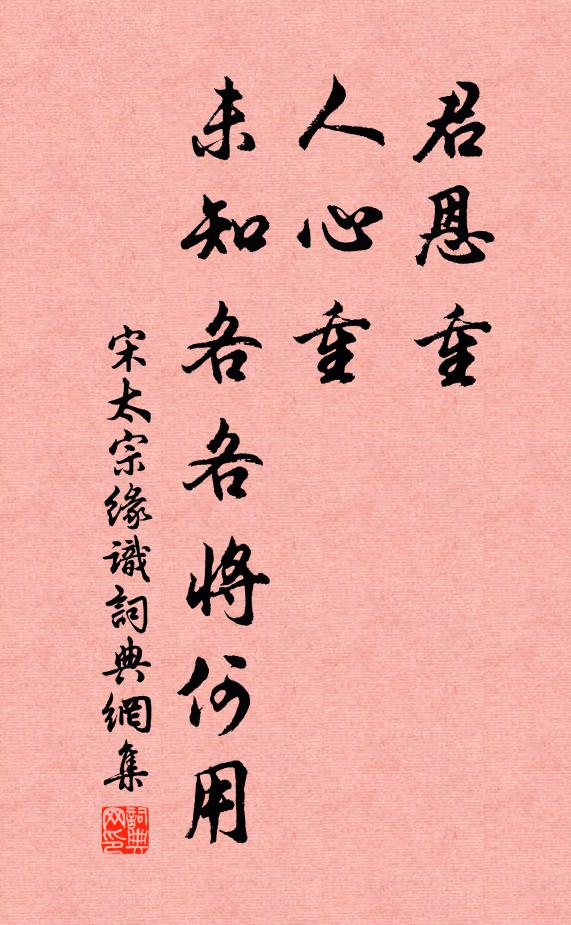 君恩重
人心重
未知各各將何用
宋太宗緣識詞典網集
詞典
网印